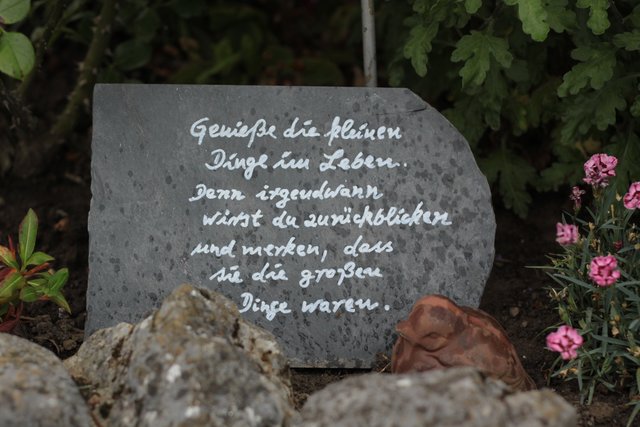 Genieße die kleinen
Dinge im Leben.
Denn irgendwann
wirst du zurückblicken
und merken, dass
sie die großen
Dinge waren.